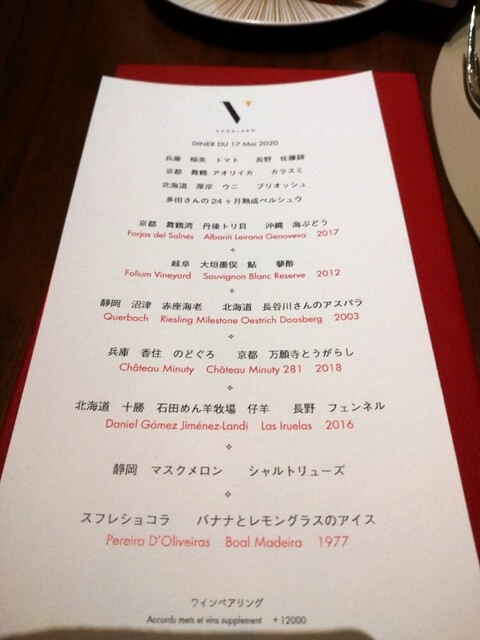 DINER DU 17 Mai 2020
兵庫 稲美 トマト 長野 佐藤錦
京都 舞鶴 アオリイカ カラスミ
北海道 厚岸 ウニ ブリオッシュ
多田さんの24ヶ月熟成ペルシュウ
京都 舞鶴湾 丹後トリ貝 沖縄 海ぶどう
Forjas del Salnés Albariñ Leirana Genoveva 2017
岐阜 大垣墨俣 鮎 蓼酢
Folium Vineyard Sauvignon Blanc Reserve 2012
静岡 沼津 赤座海老 北海道 長谷川さんのアスパラ
Querbach Riesling Milestone Oestrich Doosberg 2003
兵庫 香住 のどぐろ 京都 万願寺とうがらし
Château Minuty Château Minuty 281 2018
北海道 十勝 石田めん羊牧場 仔羊 長野 フェンネル
Daniel Gómez Jiménez-Landi Las Iruelas 2016
静岡 マスクメロン シャルトリューズ
スフレショコラ バナナとレモングラスのアイス
Pereira D'Oliveiras Boal Madeira 1977
ワインペアリング
Accords mets et vins supplement +12000